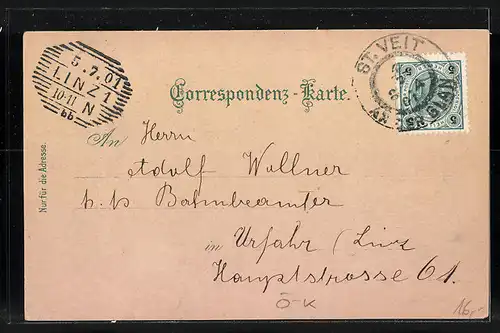 5.7.01
LINZ 1
10-11 N
bb
ST. VEIT
5 5
Correspondenz-Karte.
Nur für die Adresse.
An Herrn
Adolf Wollner
k. k. Bahnbeamter
in Urfahr / Linz
Hauptstrosse 61.
Ö-K
16,-